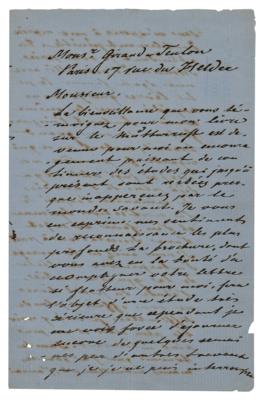 Monsr Giraud-Teulon
Paris 17 rue du Helder
Monsieur.
La bienveillance que vous té-
moignez pour mon livre
sur le Mutterrecht est de-
venue pour moi un encoura-
gement puissant de con-
tinuer des études qui jusqu'à
présent sont restées pres-
que inapperçues par le
monde savant. Je vous
en exprime mes sentiments
de reconnaissance les plus
profonds. La brochure, dont
vous avez eu la bonté d'a-
ccompagner votre lettre
si flatteuse pour moi, fera
l'objet d'une étude très
sérieuse que cependant je
me vois forcé d'ajourner
encore de quelques semai-
nes par d'autres travaux
que je ne puis interrompre